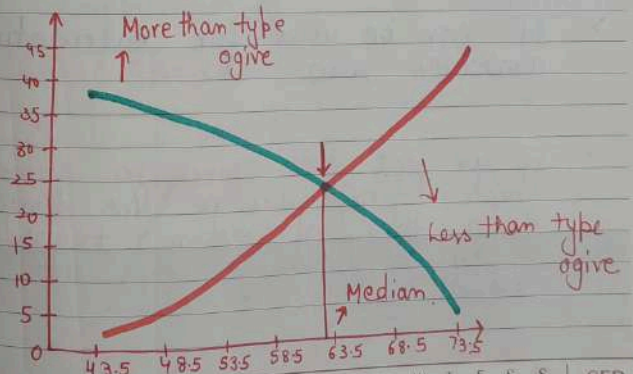 More than type
ogive
45
40
35
30
25
20
15
10
5
0
Less than type
ogive
Median.
43.5 48.5 53.5 58.5 63.5 68.5 73.5